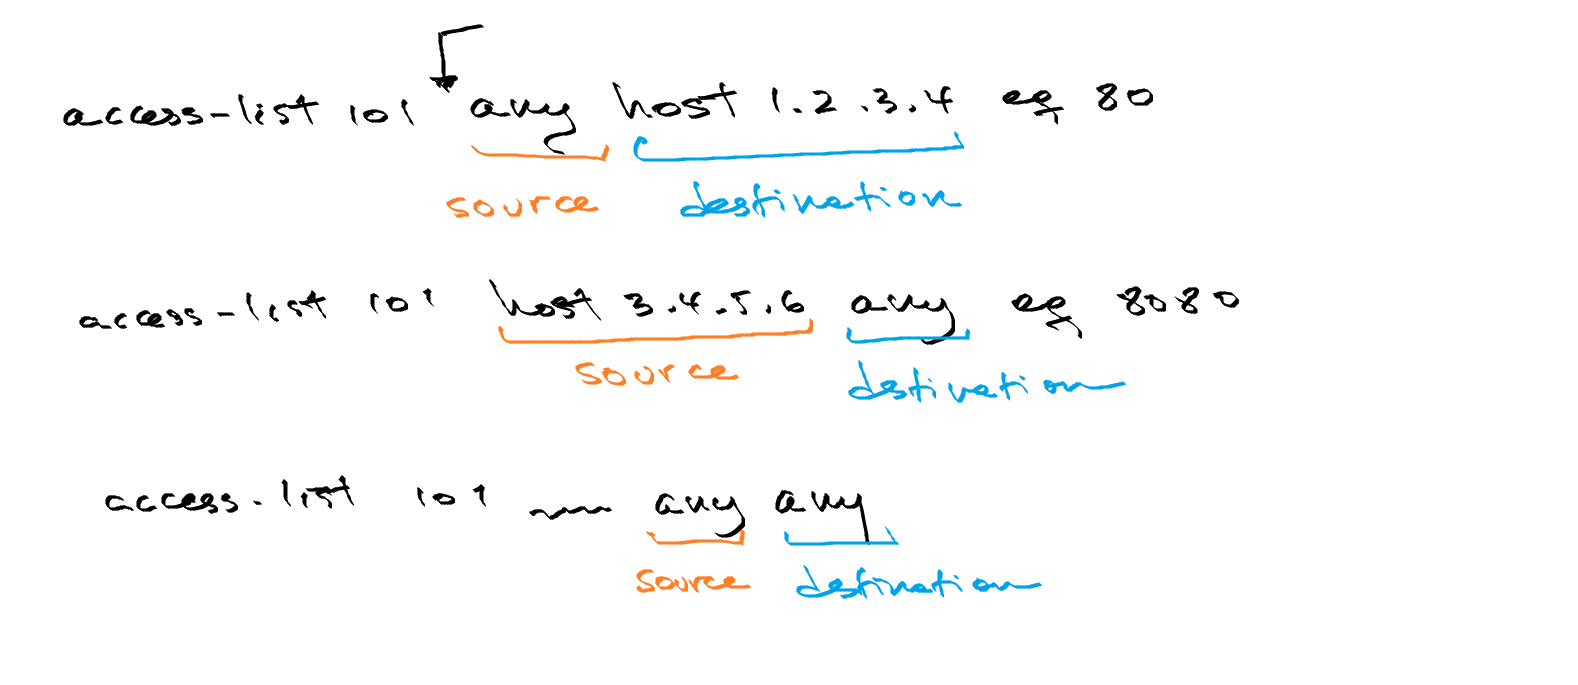 access-list 101 any host 1.2.3.4 eq 80
source destination
access-list 101 host 3.4.5.6 any eq 8080
source destination
access-list 101 any any
source destination